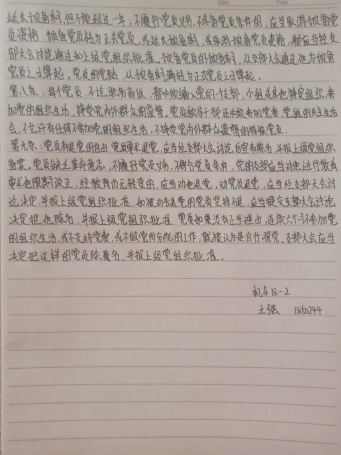 Date. Page.
延长预备期,但不能超过一年。不履行党员义务,不具备党员条件的,应当取消预备党员
资格。预备党员转为正式党员,或延长预备期,或取消预备党员资格,都应当经支
部大会讨论通过和上级党组织批准。预备党员的预备期,从支部大会通过他为预备
党员之日算起。党员的党龄,从预备期满转为正式党员之日算起。
第八条:每个党员,不论职务高低,都必须编入党的一个支部、小组或其他特定组织,参
加党的组织生活,接受党内外群众的监督。党员领导干部还必须参加党委、党组的民主生活
会。不允许有任何不参加党的组织生活、不接受党内外群众监督的特殊党员。
第九条:党员有退党的自由。党员要求退党,应当经支部大会讨论后宣布除名,并报上级党组织
备案。党员缺乏革命意志,不履行党员义务,不符合党员条件,党的支部应当对他进行教育
要求他限期改正;经教育仍无转变的,应当劝他退党。劝党员退党,应当经支部大会讨
论决定,并报上级党组织批准。如被劝告退党的党员坚持不退,应当提交支部大会讨论,
决定把他除名,并报上级党组织批准。党员如果没有正当理由,连续六个月不参加党
的组织生活,或不交纳党费,或不做党所分配的工作,就被认为是自行脱党。支部大会应当
决定把这样的党员除名,并报上级党组织批准。
机车18-2
王强